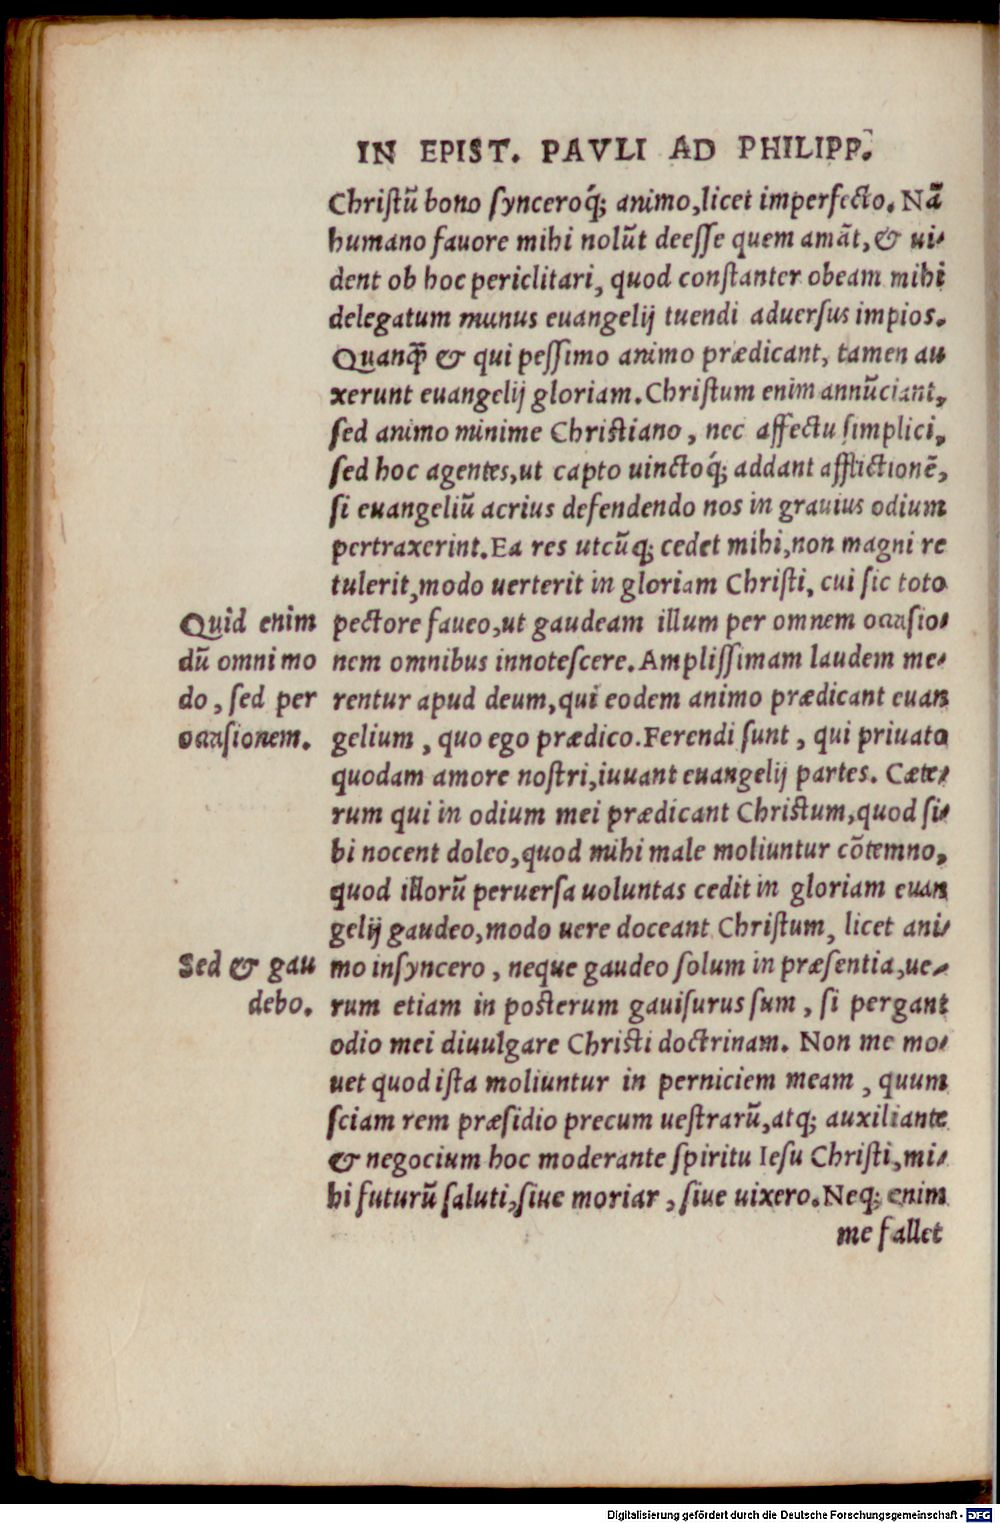 IN EPIST. PAVLI AD PHILIPP.
Christũ bono synceroq́; animo, licet imperfecto. Nã
humano favore mihi nolũt deesse quem amãt, & ui-
dent ob hoc periclitari, quod constanter obeam mihi
delegatum munus euangelij tuendi aduersus impios.
Quanq̃ & qui pessimo animo prædicant, tamen au
xerunt euangelij gloriam. Christum enim annũciant,
sed animo minime Christiano, nec affectu simplici,
sed hoc agentes, ut capto uinctoq́; addant afflictionẽ,
si euangeliũ acrius defendendo nos in grauius odium
pertraxerint. Ea res utcũq; cedet mihi, non magni re
tulerit, modo uerterit in gloriam Christi, cui sic toto
Quid enim
dũ omni mo
do, sed per
occasionem.
pectore faueo, ut gaudeam illum per omnem occasio-
nem omnibus innotescere. Amplissimam laudem me-
rentur apud deum, qui eodem animo prædicant euan
gelium, quo ego prædico. Ferendi sunt, qui priuato
quodam amore nostri, iuuant euangelij partes. Cæte-
rum qui in odium mei prædicant Christum, quod si-
bi nocent doleo, quod mihi male moliuntur cõtemno,
quod illorũ peruersa uoluntas cedit in gloriam euan
gelij gaudeo, modo uere doceant Christum, licet ani-
Sed & gau
debo.
mo insyncero, neque gaudeo solum in præsentia, ue-
rum etiam in posterum gauisurus sum, si pergant
odio mei diuulgare Christi doctrinam. Non me mo-
uet quod ista moliuntur in perniciem meam, quum
sciam rem præsidio precum uestrarũ, atq; auxiliante
& negocium hoc moderante spiritu Iesu Christi, mi-
hi futurũ saluti, siue moriar, siue uixero. Neq; enim
me fallet
Digitalisierung gefördert durch die Deutsche Forschungsgemeinschaft - DFG